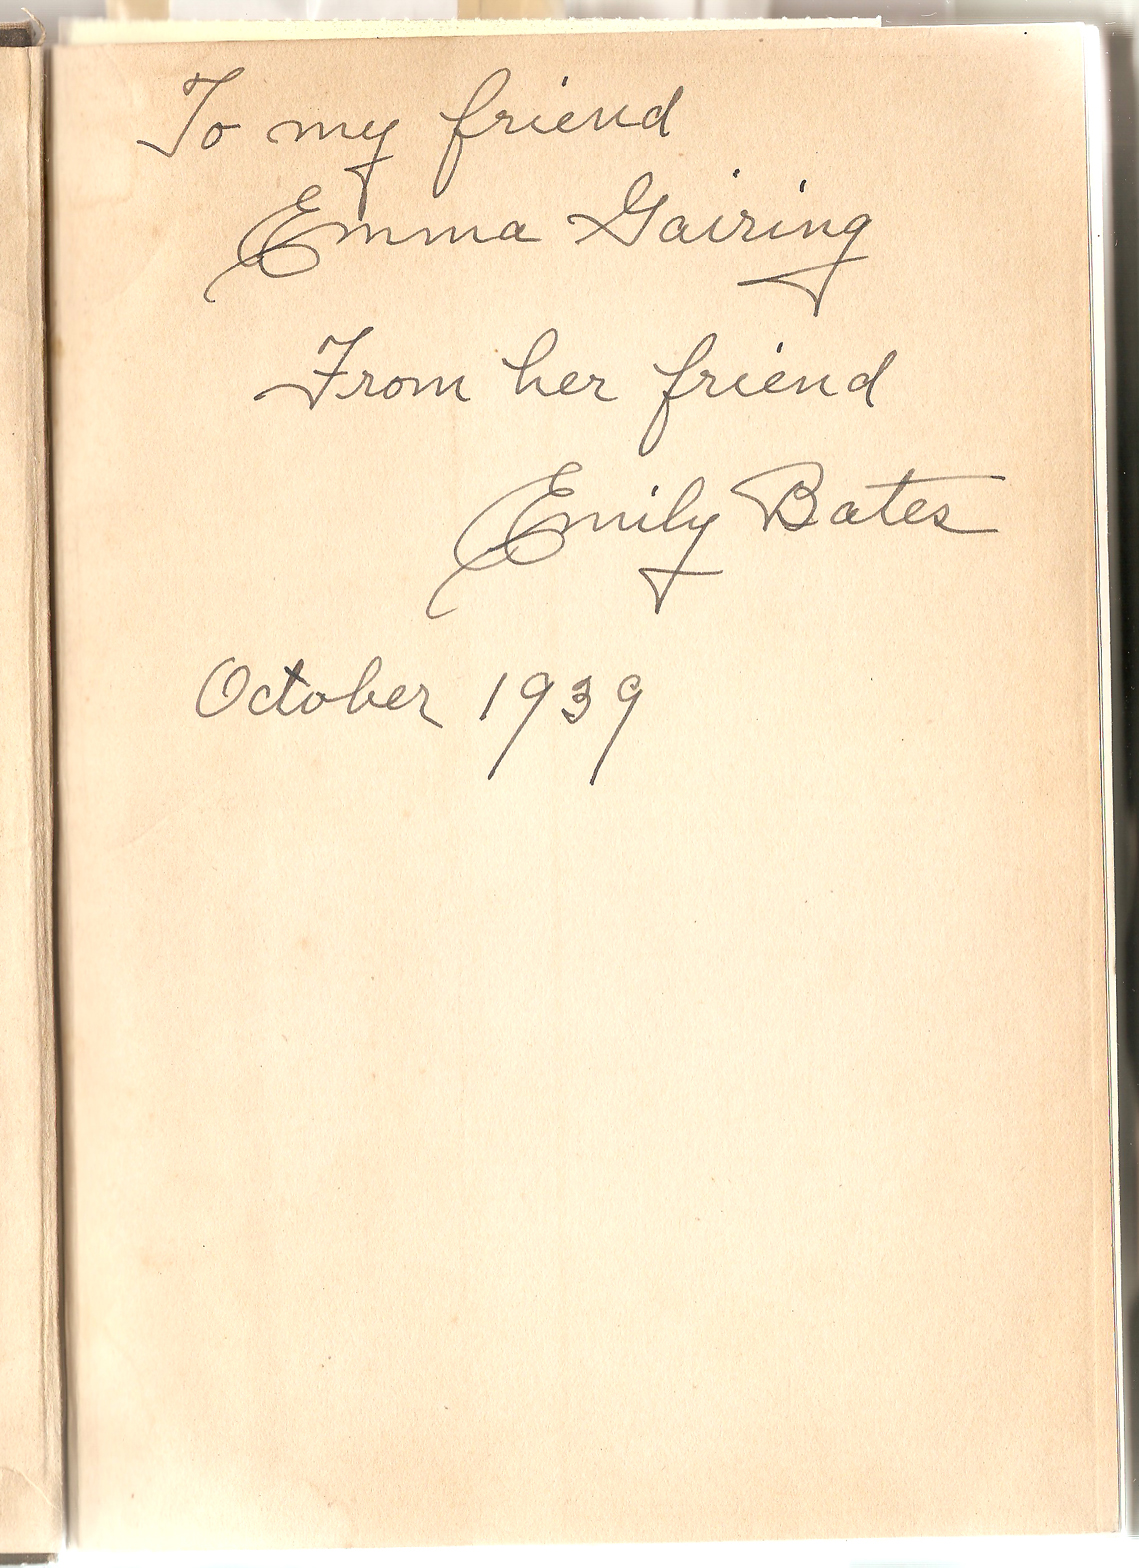 To my friend
Emma Gairing
From her friend
Emily Bates
October 1939